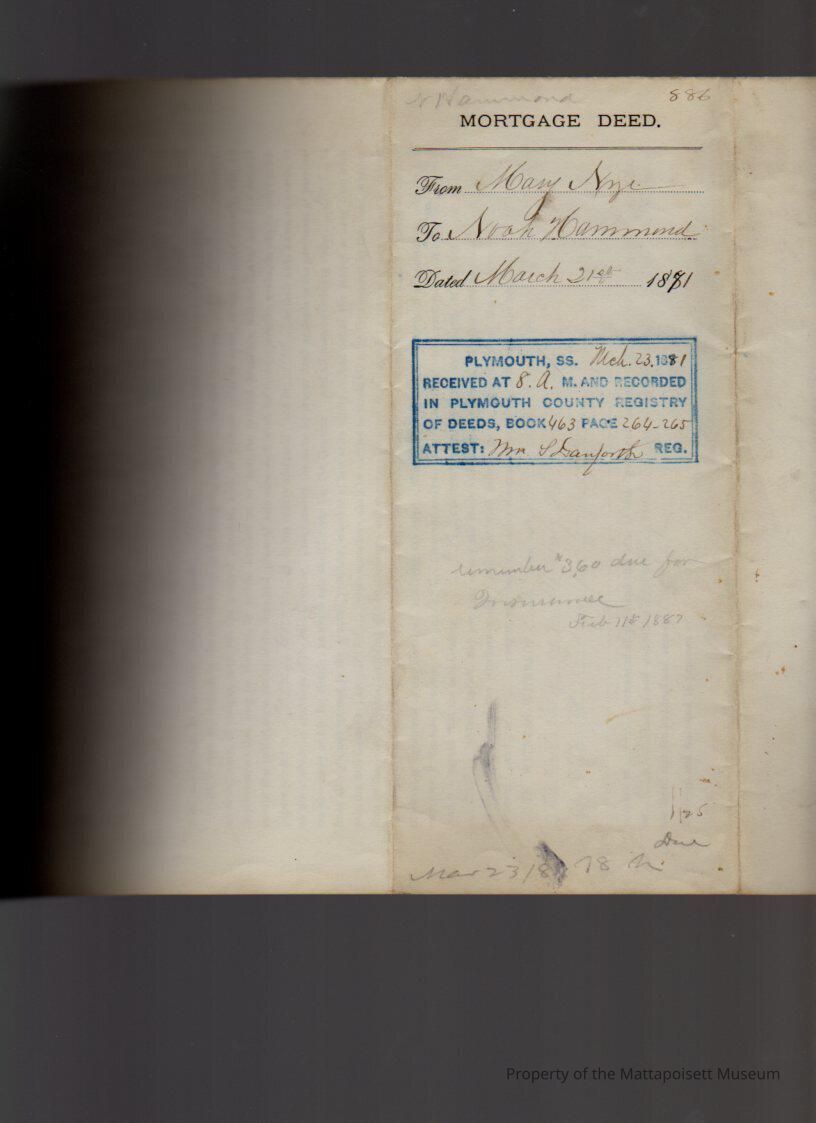 N Hammond 886
MORTGAGE DEED.
From Mary Nye
To Noah Hammond
Dated March 21st 1881
PLYMOUTH, SS. Mch. 23, 1881
RECEIVED AT 8. A. M. AND RECORDED
IN PLYMOUTH COUNTY REGISTRY
OF DEEDS, BOOK 463 PAGE 264-265
ATTEST: Wm S Danforth REG.
remember $3.60 due for
Insurance
Feb 11th 1887
1125
Due
Mar 23 18
Property of the Mattapoisett Museum